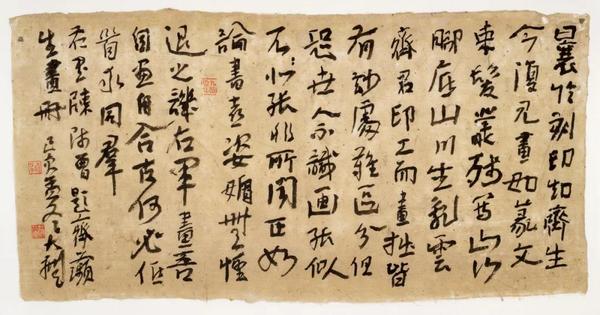 曩於刻印知齊生
今復見畫如篆文
束髮叢殘寫山
腳底山川生亂雲
齊君印工而畫拙皆
有妙處難區分但
恐世人不識画似
不非所聞正如
論書喜姿媚無怪
退之譏右軍畫吾
自畫自合古何必低
首求同群
陳師曾題齊蘋
生畫冊